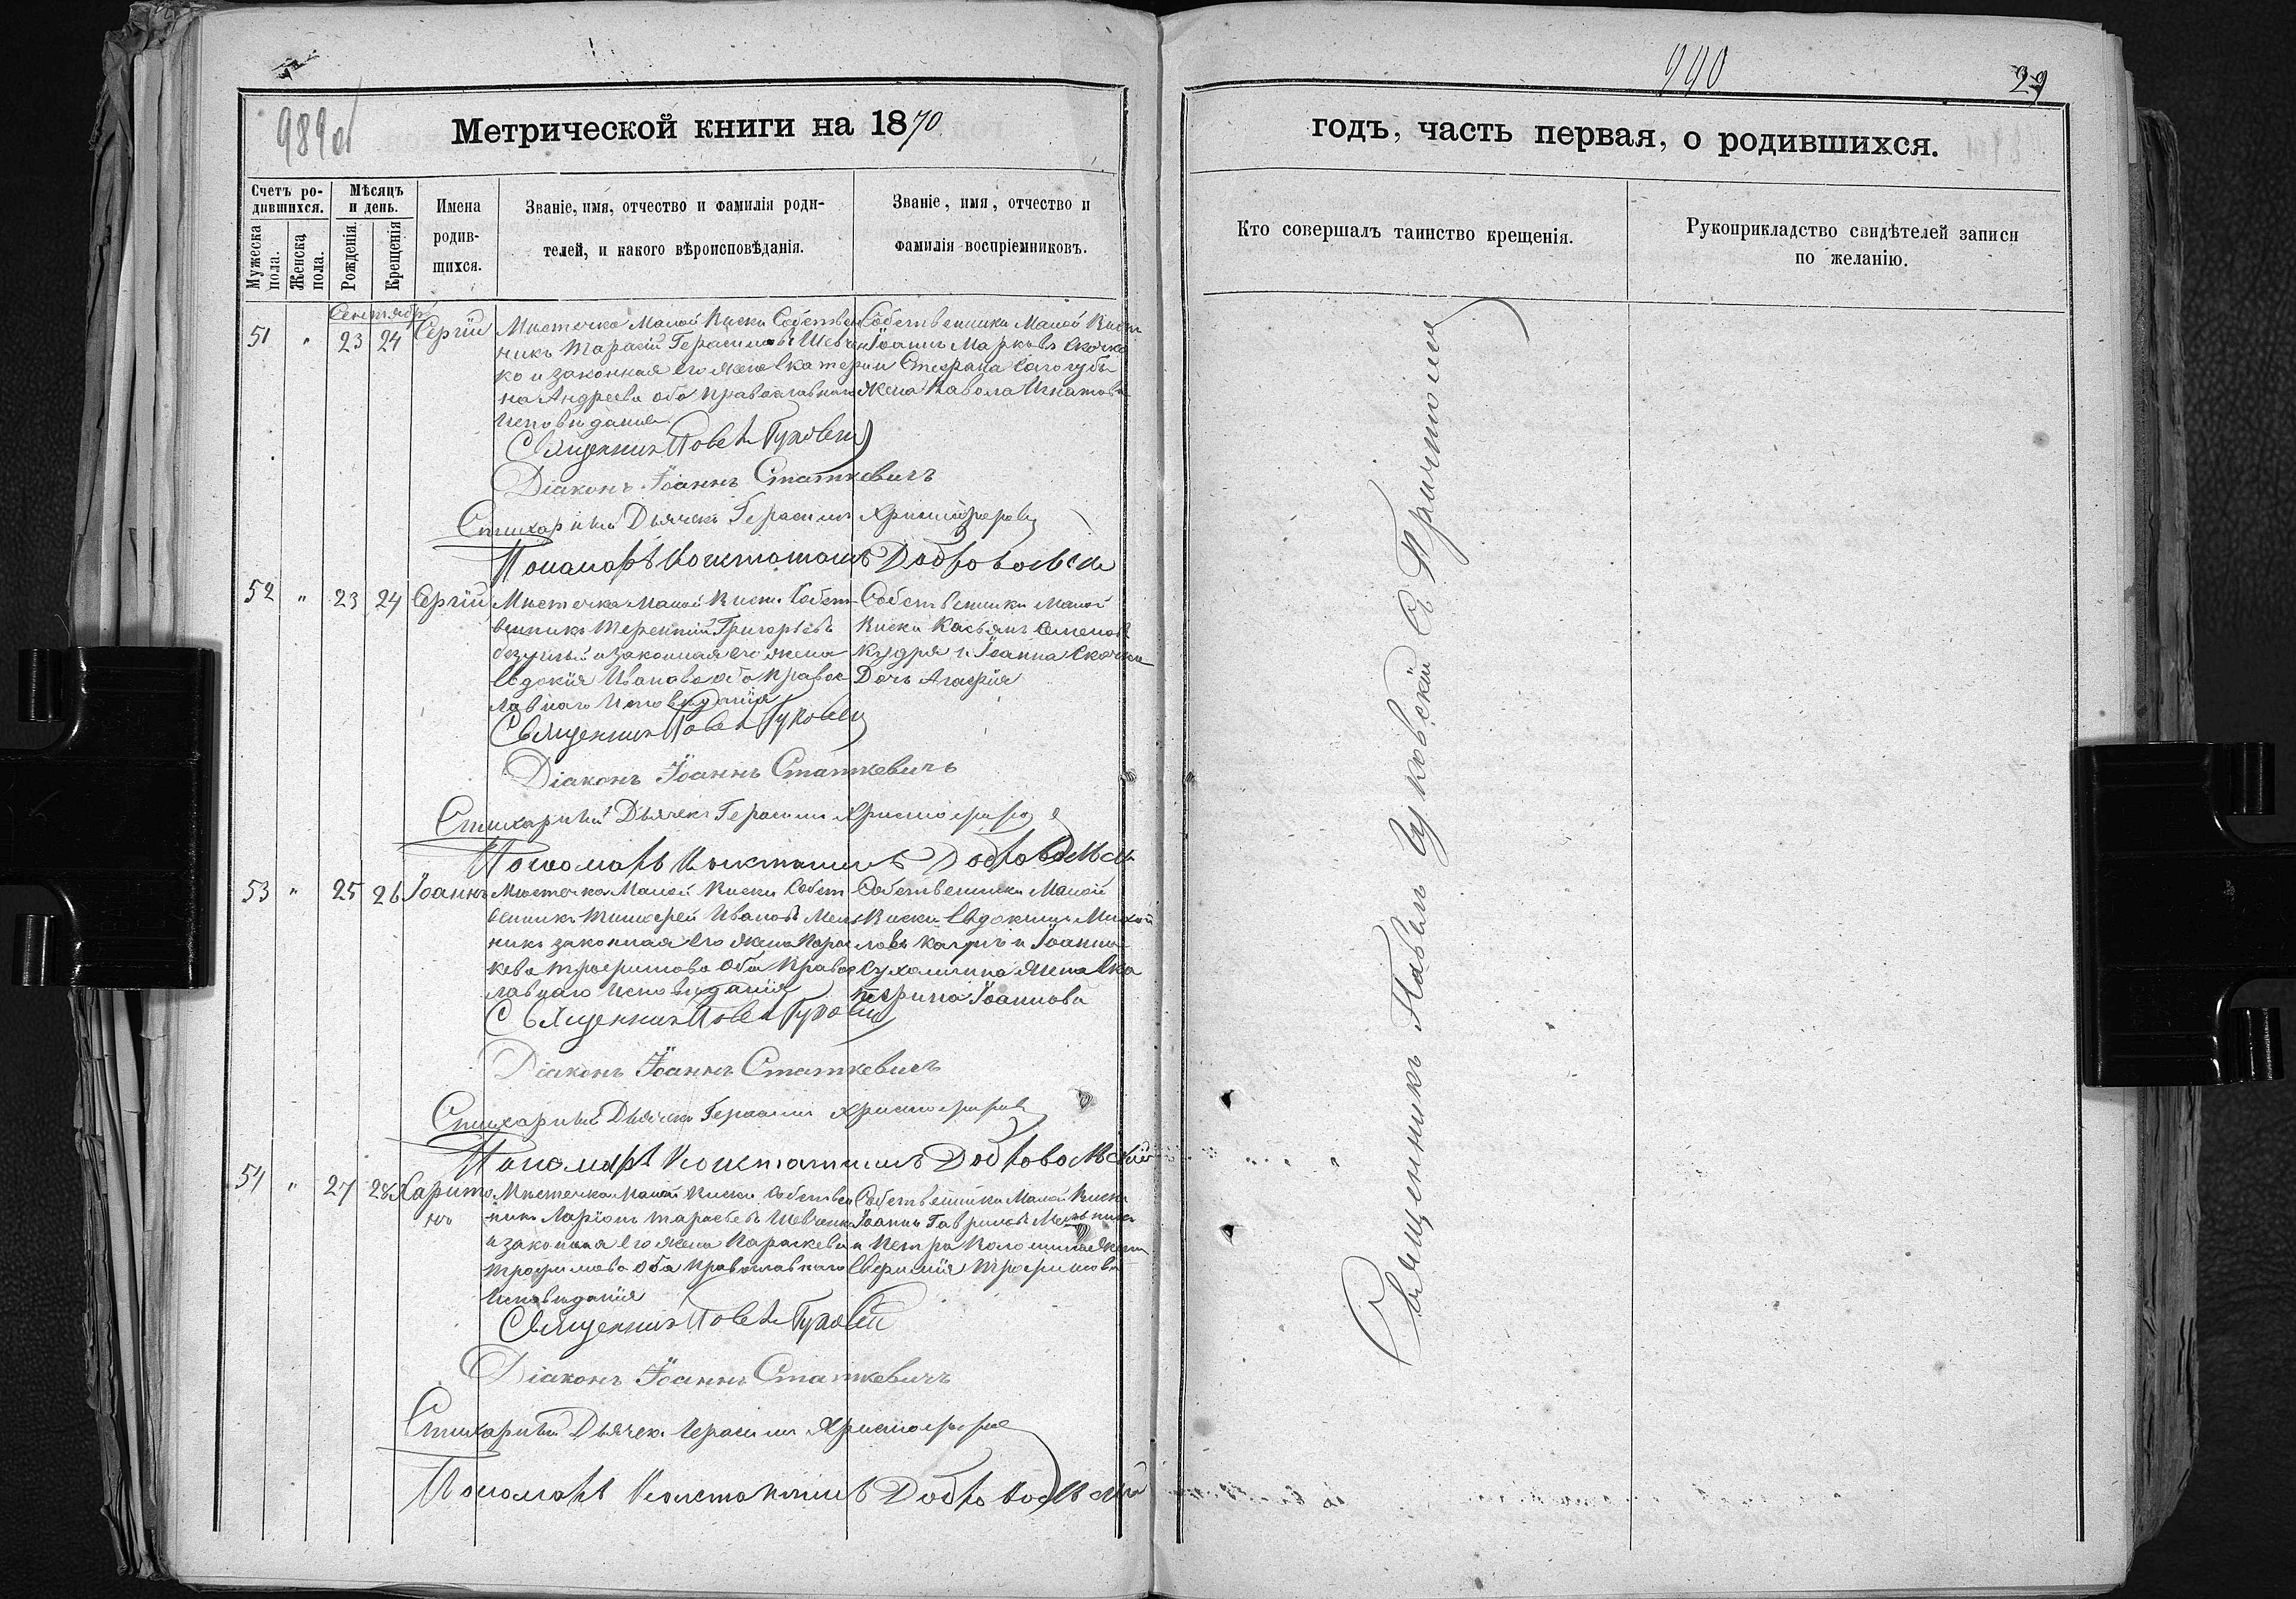 989 об
Метрической книги на 1870
Счетъ ро-
дившихся.
Мѣсяцъ
и день.
Мужеска
пола.
Женска
пола.
Рожденія.
Крещенія
Имена
родив-
шихся.
Званіе, имя, отчество и фамилія роди-
телей, и какого вѣроисповѣданія.
Званіе, имя, отчество и
фамилія воспріемниковъ.
Сентябр
51 " 23 24 Сергій
Мѣстечка Малой Виски Собствен
никъ Тарасій Герасимовъ Шевчен
ко и законная его жена Екатери
на Андреева оба православнаго
исповѣданія
Собственники Малой Виски
Іоаннъ Марковъ
и Стефана
жена Павола Игнатова
Священникъ Павелъ Гуковскій
Діаконъ Іоаннъ Статкевичъ
Стихарный Дьячекъ Герасимъ Христофоровъ
Пономарь Константинъ Добровольск
52 " 23 24 Сергій
Мѣстечка Малой Виски Собст
венникъ Терентій Григорьевъ
и законная его жена
Евдокія Иванова оба правос
лавнаго исповѣданія
Собственники Малой
Виски Касьянъ Семеновъ
Кудря и Іоанна
Дочь Агафія
Священникъ Павелъ Гуковскій
Діаконъ Іоаннъ Статкевичъ
Стихарный Дьячекъ Герасимъ Христофоровъ
Пономарь Константинъ Добровольск
53 " 25 26 Іоаннъ
Мѣстечка Малой Виски Собст
венникъ Тимофей Ивановъ Мель
никъ законная его жена Парас
кева Трофимова оба правос
лавнаго исповѣданія
Собственники Малой
Виски Евдокимъ Михай
ловъ и Іоанна
жена Ека
терина Іоаннова
Священникъ Павелъ Гуковскій
Діаконъ Іоаннъ Статкевичъ
Стихарный Дьячекъ Герасимъ Христофоровъ
Пономарь Константинъ Добровольскій
54 " 27 28 Харито
нъ
Мѣстечка Малой Виски Собствен
никъ Ларіонъ Тарасьевъ Шевченко
и законная его жена Параскева
Трофимова оба православнаго
исповѣданія
Собственники Малой Виски
Іоаннъ Гавриловъ Мельникъ
и Петра жена
Евфимія Трофимова
Священникъ Павелъ Гуковскій
Діаконъ Іоаннъ Статкевичъ
Стихарный Дьячекъ Герасимъ Христофоровъ
Пономарь Константинъ Добровольскій
990
29
годъ, часть первая, о родившихся.
Кто совершалъ таинство крещенія.
Рукоприкладство свидѣтелей записи
по желанію.
Священникъ Павелъ Гуковскій Съ Причтомъ